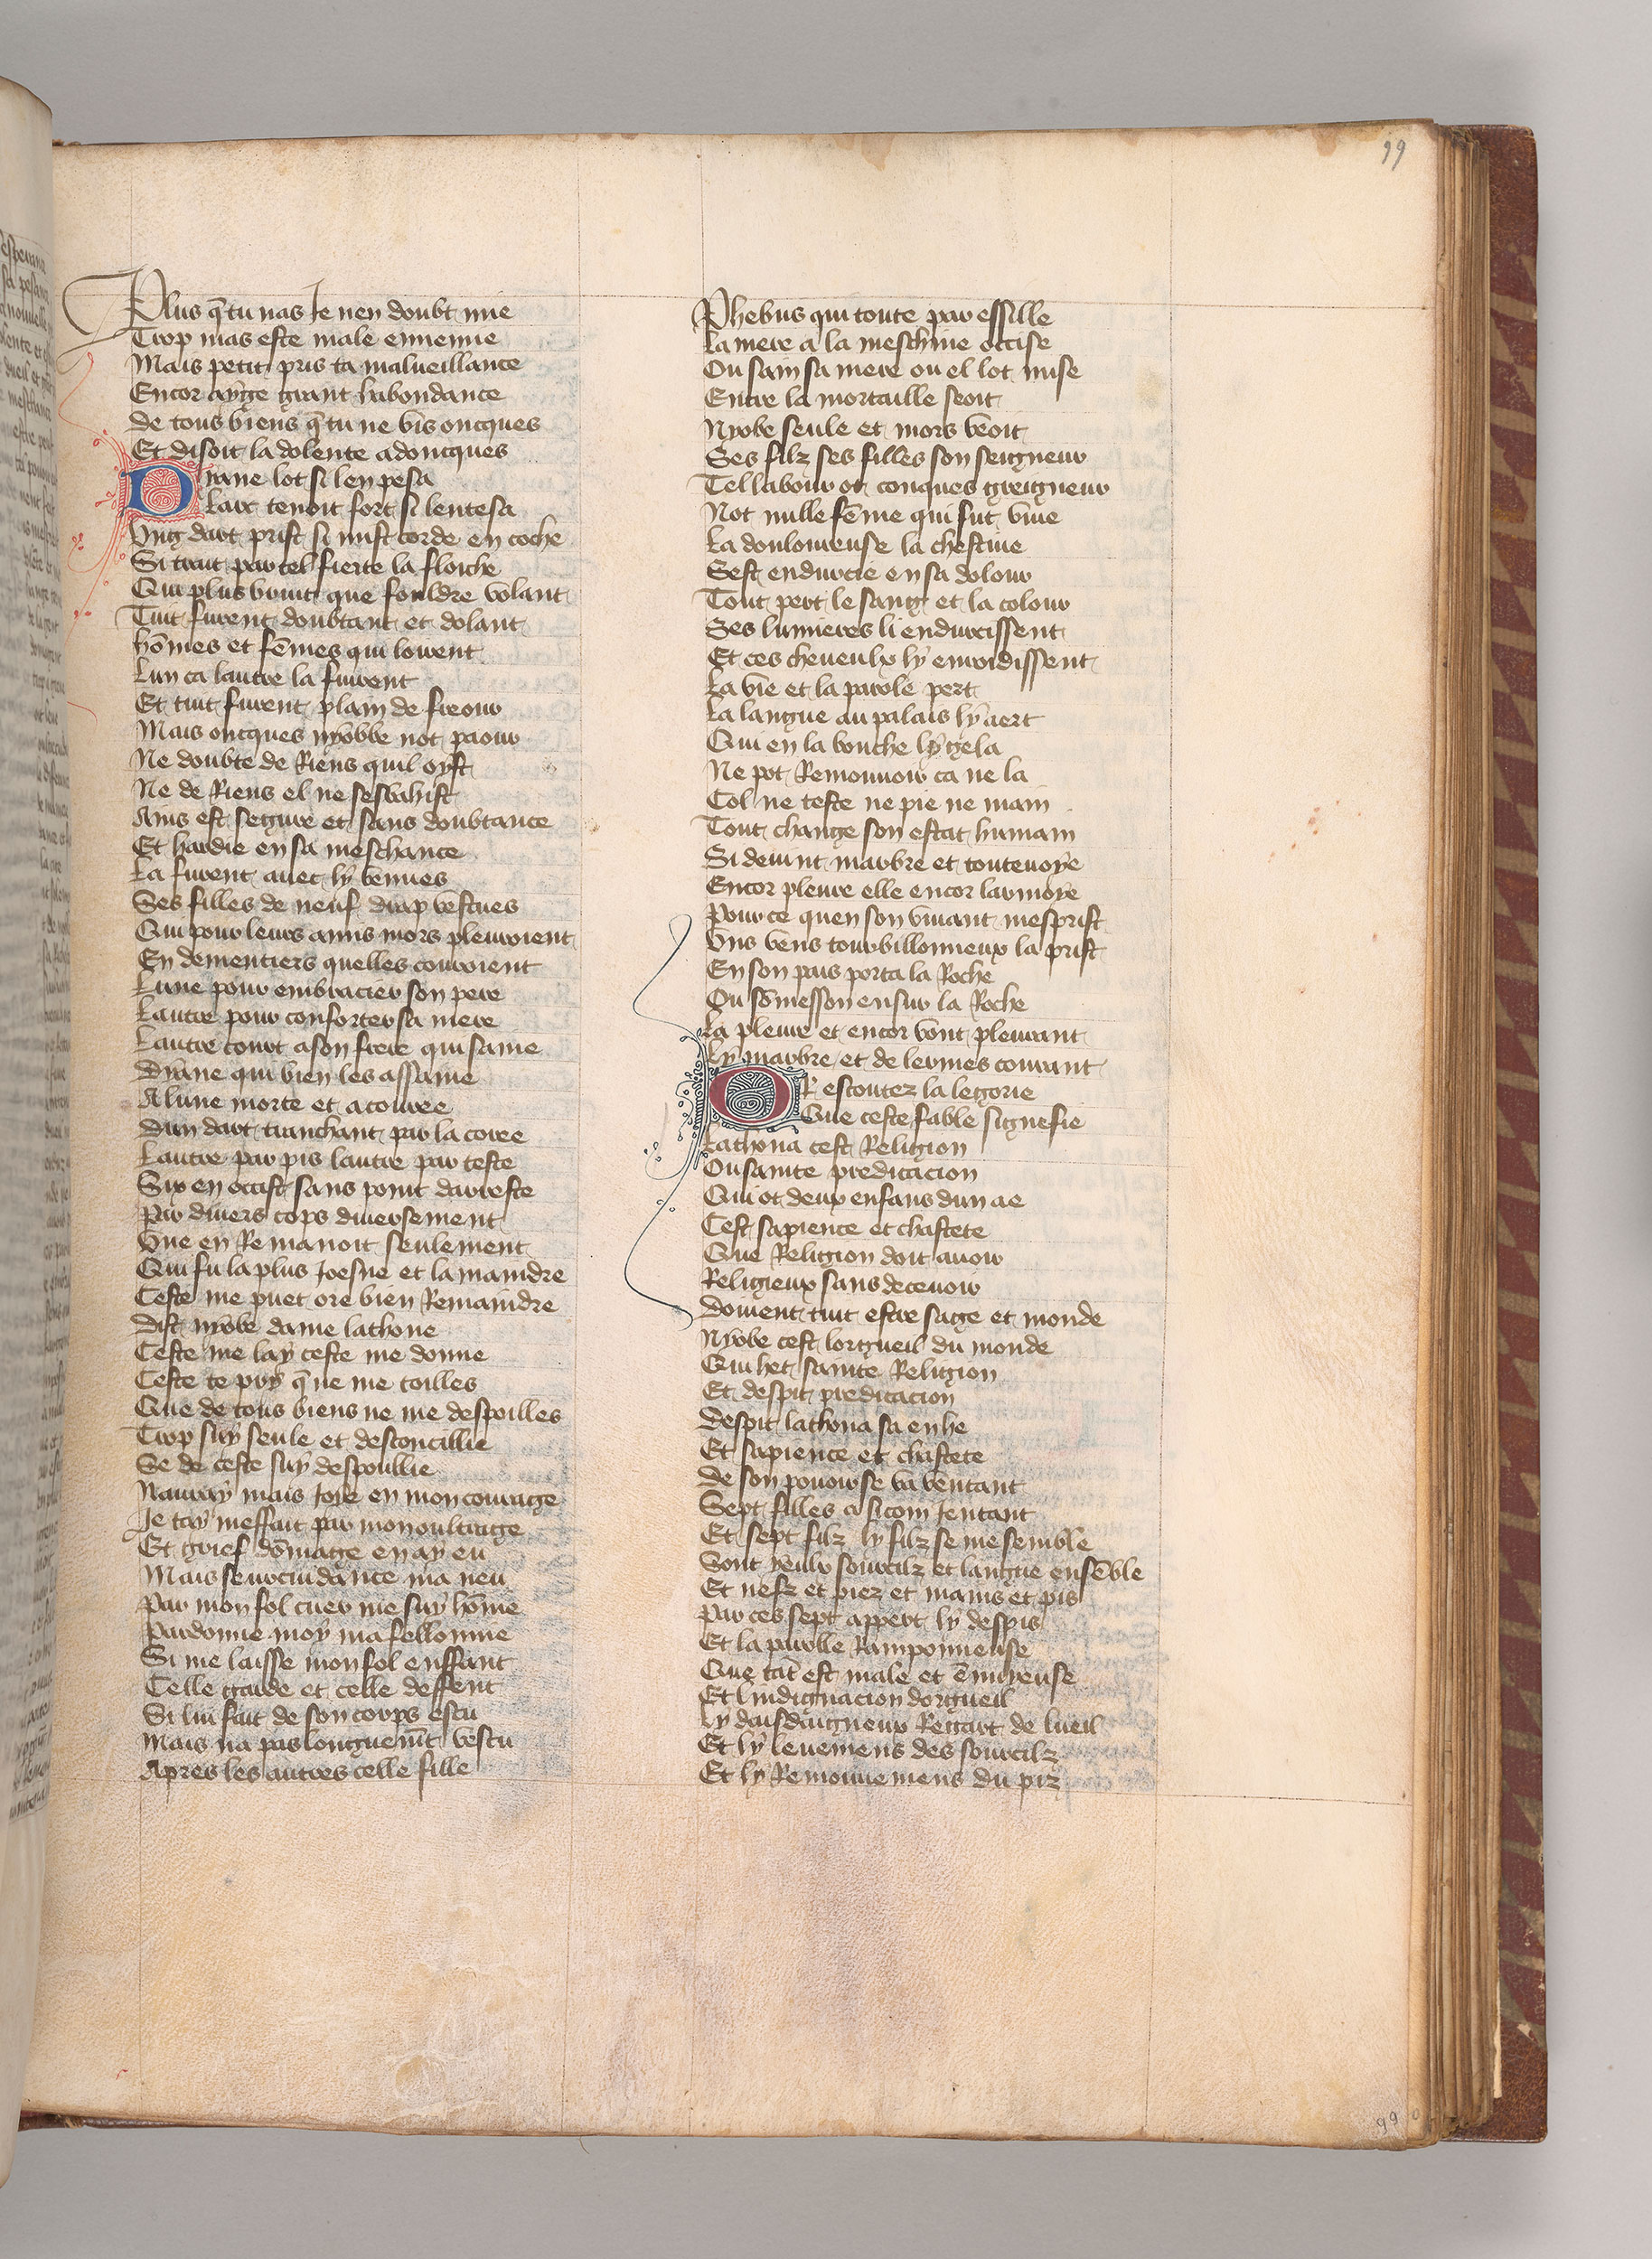 99
Plus q̄ tu nas Je nen doubt mie
Trop mas este male ennemie
Mais petit pris ta malueillance
Encor ay ge grant habondance
de tous biens q̄ tu ne vis oncques
Et disoit la dolente adoncques
Diane lot si len pesa
Larc tenoit fort si lentesa
Vng dart prist si mist corde en coche
Si trait par tel fierte la floiche
Qui plus bruit que fouldre volant
Tuit furent doubtant et dolant
hōmes et fēmes qui lourent
Lun ca lautre la fuirent
Et tuit furent plain de freour
Mais oncques nyobbe not paour
Ne doubte de Riens quil oyst
Ne de Riens el ne sesbahist
Ains est segure et sans doubtance
Et hardie en sa meschance
La furent auec ly venues
Ses filles de neuf drap vestues
Qui pour leurs amis mors pleuroient
En dementiers quelles couroient
Lune pour embracier son pere
Lautre pour conforter sa mere
Lautre court a son frere qui same
Dyane qui bien les assame
A lune morte et acouree
dun dart tranchant par la coree
Lautre par pis lautre par teste
Six en occist sans point darreste
Par diuers cops diuersement
Vne en Remanoit seulement
Qui fu la plus Joesne et la maindre
Ceste me puet ore bien Remaindre
dist nyobe dame lathone
Ceste me lay ceste me donne
Ceste te pry q̄ ne me toilles
Que de tous biens ne me despoilles
Trop suy seule et desconcillie
Se de ceste suy despoullie
Nauray mais Joie en mon courage
Je tay meffait par mon oultrage
Et grief dōmage en ay eu
Mais seurcuidance ma neu
Par mon fol cuer me suy hōme
Pardonne moy ma fellonnie
Si me laisse mon fol enffant
Celle garde et celle deffent
Si lui fait de son corps escu
Mais na pas longuem̄t vescu
Apres les autres celle fille
Phebus qui toute par essille
La mere a la meschine occise
Ou sain sa mere ou el lot mise
Entre la mortaille seoit
Nyobe seule et mors veoit
Ses filz ses filles son seigneur
Tel labour ot conques greigneur
Not nulle fēme qui fut viue
La douloureuse la chestiue
Sest endurcie en sa dolour
Tout pert le sang et la colour
Ses lumieres li endurcissent
Et ces cheueulx ly enroidissent
La vie et la parole pert
La langue au palais ly aert
Qui en la bouche ly gela
Ne pot Remouuoir ca ne la
Col ne teste ne pie ne main
Tout change son estat humain
Si deuint marbre et touteuoye
Encor pleure elle encor larmoye
Pour ce quen son viuant mesprist
Vns vens tourbillonneux la prist
En son pais porta la Roche
Ou sōmesson ensur la Roche
La pleure et encor vont pleurant
Ly marbre et de lermes courant
OR escoutez la legorie
Que ceste fable signefie
Lathona cest Religion
Ou sainte predicacion
Qui ot deux enfans dun ae
Cest sapience et chastete
Que Religion doit auoir
Religieux sans deceuoir
doiuent tuit estre sage et monde
Nyobe cest lorgueil du monde
Qui het sainte Religion
Et despit predicacion
despit lathona sa enhe
Et sapience et chastete
de son pouoir se va ventant
Sept filles a si com Jentant
Et sept filz ly filz se me semble
Sont yeulx sourcilz et langue ensēble
Et nefz et piez et mains et pis
Par ces sept appert ly despis
Et la parolle Ramponneuse
Que tāt est male et ēnuyeuse
Et lindignacion dorgueil
Ly daisdaigneux Regart de lueil
Et ly leuemens des sourcilz
Et ly Remouuemens du piz
99